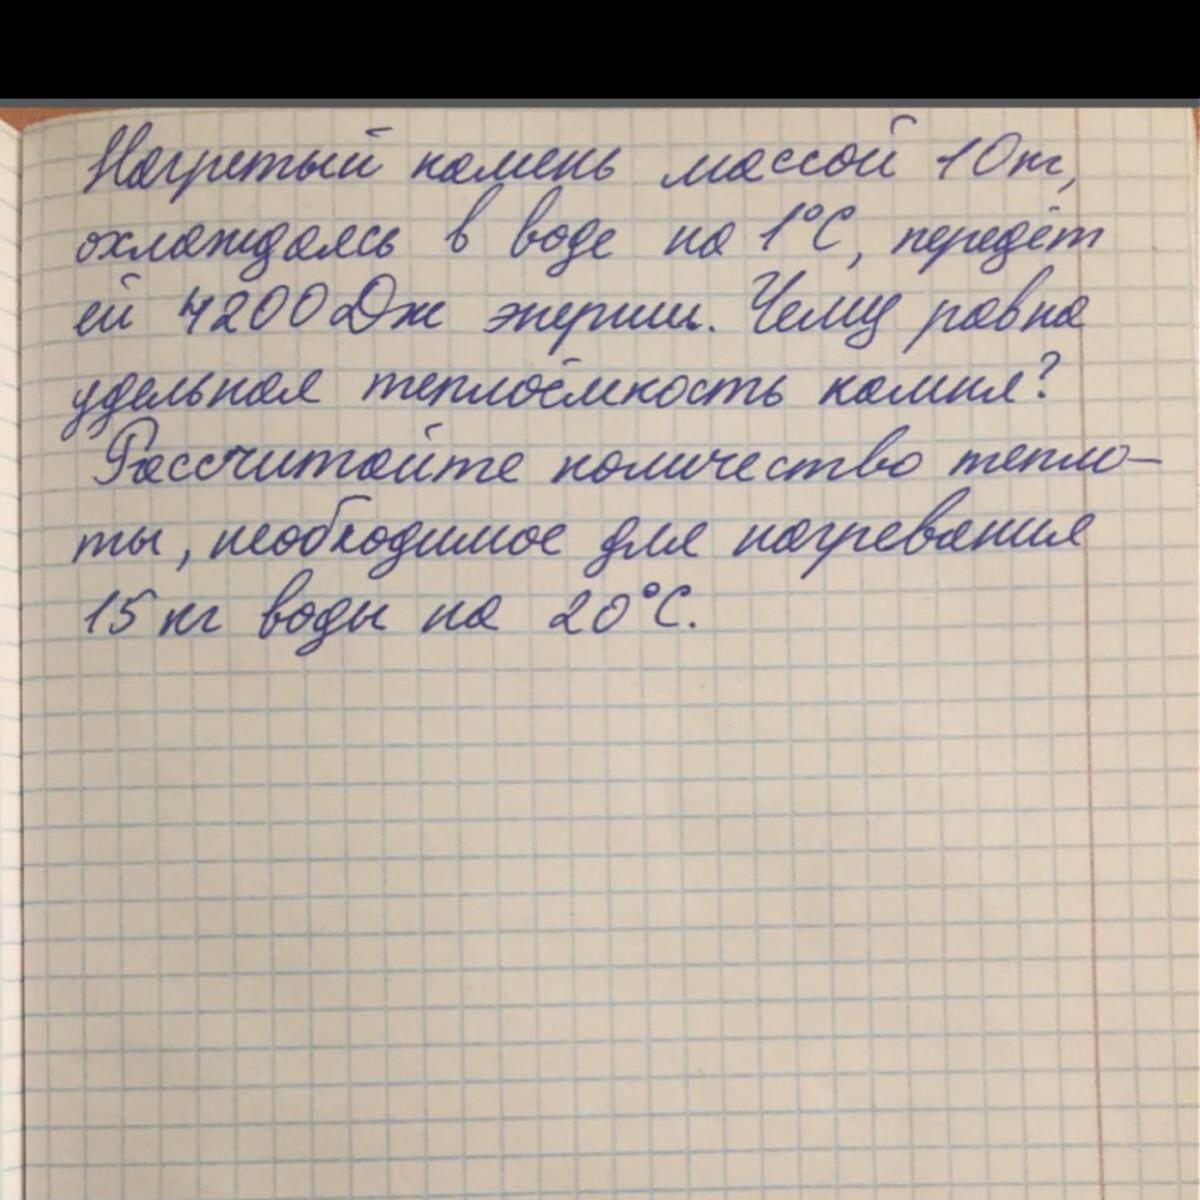 Нагретый камень массой 10кг,
охлаждаясь в воде на 1°С, передёт
ей 4200Дж энергии. Чему равна
удельная теплоёмкость камня?
Рассчитайте количество тепло-
ты, необходимое для нагревания
15 кг воды на 20°С.